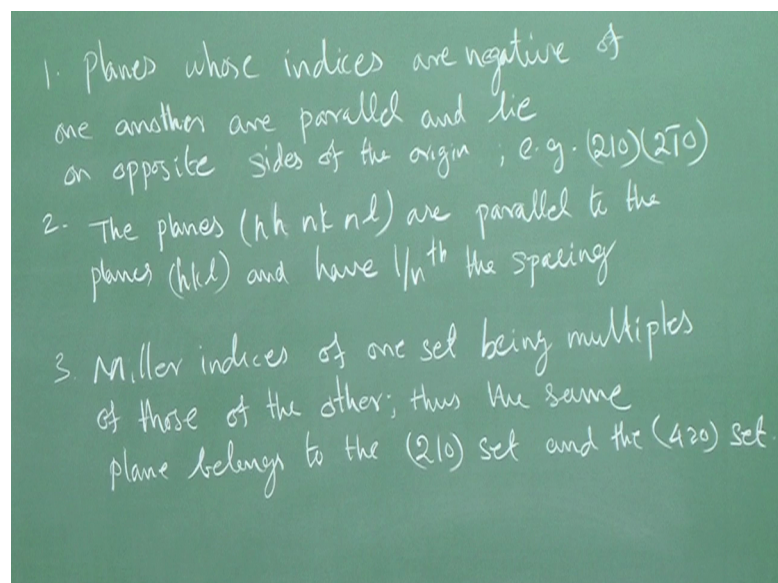 1. Planes whose indices are negative of
one another are parallel and lie
on opposite sides of the origin ; e.g. (210)(2̅1̅0)
2. The planes (nh nk nl) are parallel to the
planes (hkl) and have 1/nth the spacing
3. Miller indices of one set being multiples
of those of the other; thus the same
plane belongs to the (210) set and the (420) set.